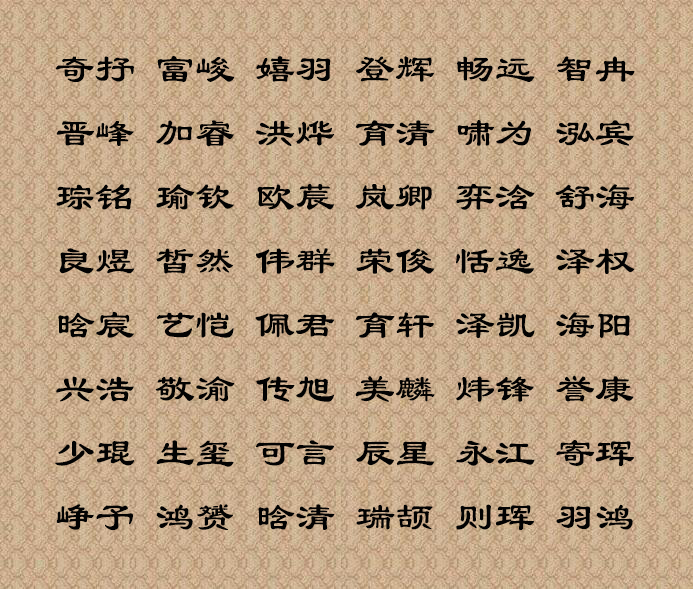 奇抒 富峻 嬉羽 登辉 畅远 智冉
晋峰 加睿 洪烨 育清 啸为 泓宾
琮铭 瑜钦 欧莀 岚卿 弈浛 舒海
良煜 皙然 伟群 荣俊 恬逸 泽权
晗宸 艺恺 佩君 育轩 泽凯 海阳
兴浩 敬渝 传旭 美麟 炜锋 誉康
少琨 生玺 可言 辰星 永江 寄珲
峥予 鸿赟 晗清 瑞颉 则珲 羽鸿